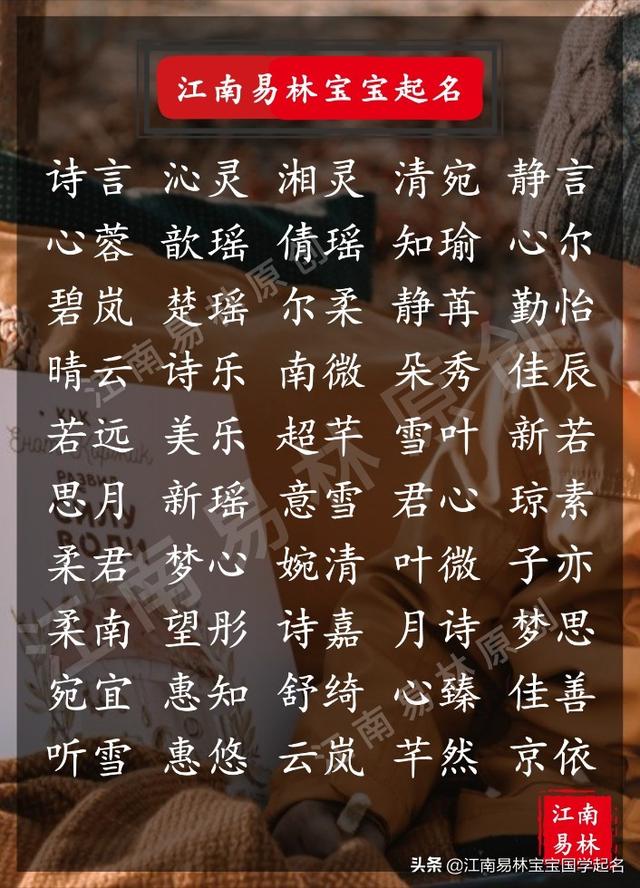 江南易林宝宝起名
诗言 沁灵 湘灵 清宛 静言
心蓉 歆瑶 倩瑶 知瑜 心尔
碧岚 楚瑶 尔柔 静苒 勤怡
晴云 诗乐 南微 朵秀 佳辰
若远 美乐 超芊 雪叶 新若
思月 新瑶 意雪 君心 琼素
柔君 梦心 婉清 叶微 子亦
柔南 望彤 诗嘉 月诗 梦思
宛宜 惠知 舒绮 心臻 佳善
听雪 惠悠 云岚 芊然 京依
КАК
РАЗВИ
СИЛУ
ВОЛИ
江南易林原创
江南易林原创
江南易林原创
江南
易林
头条 @江南易林宝宝国学起名